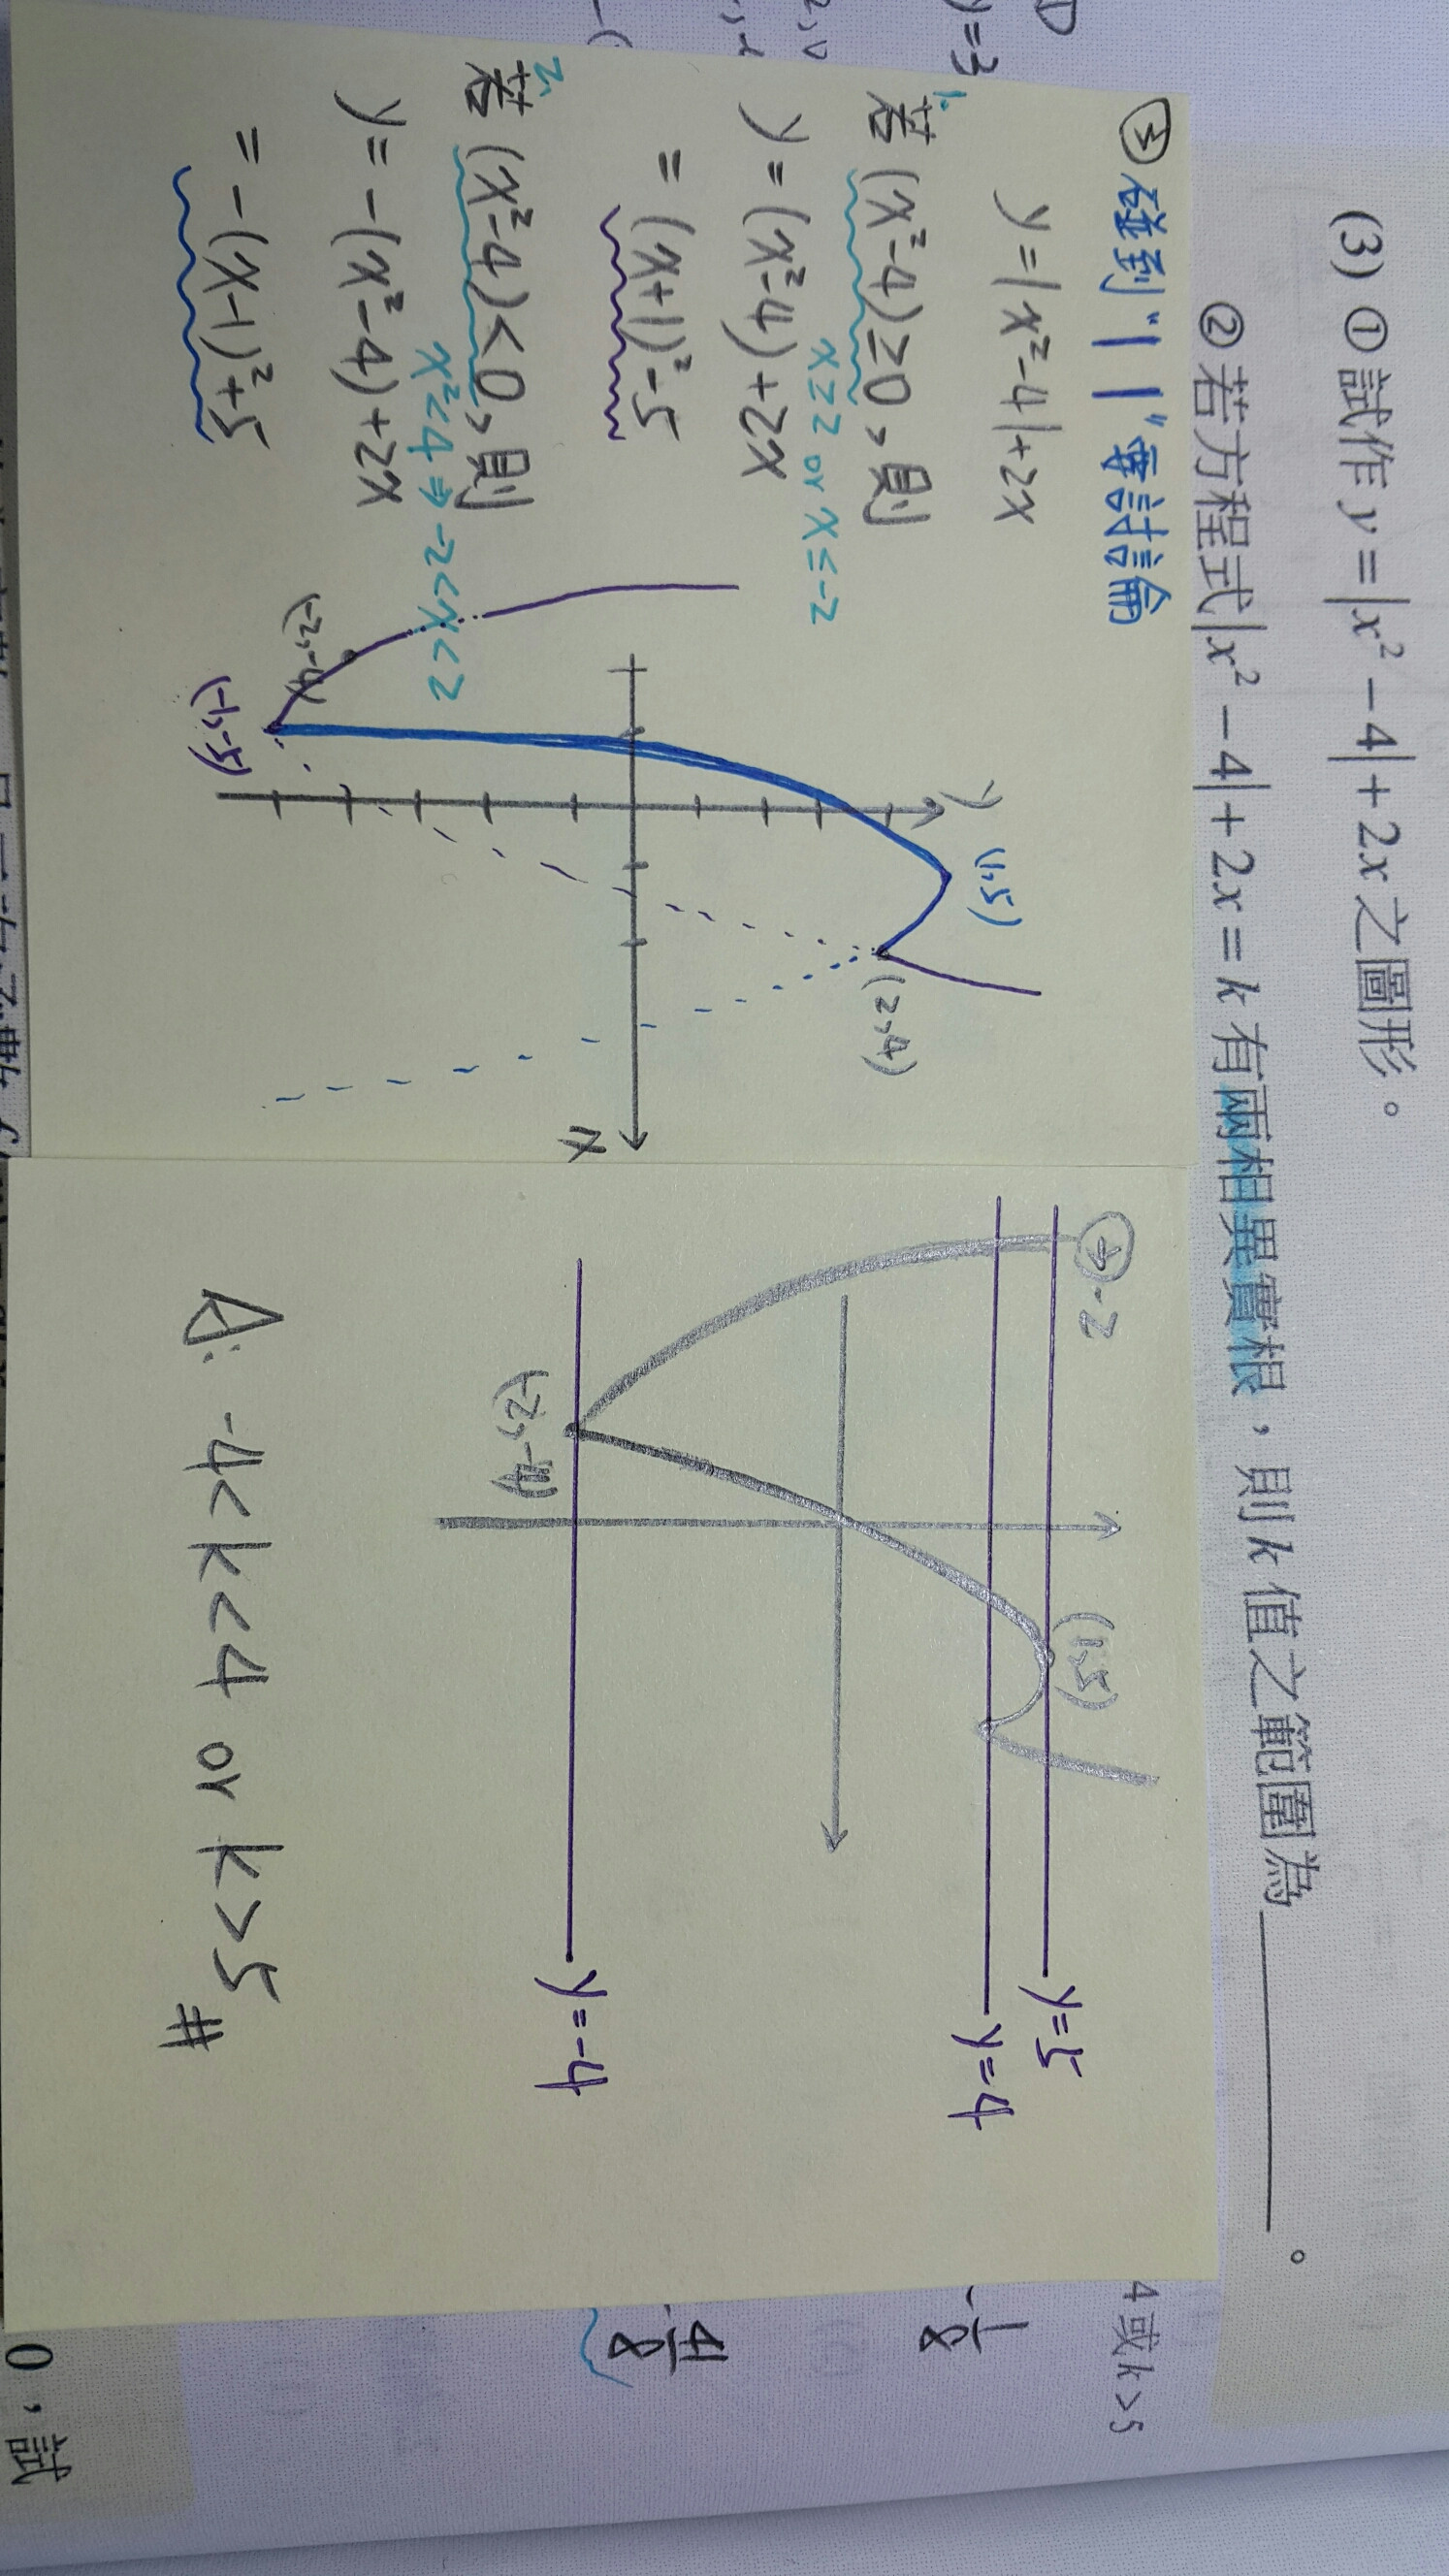 (3) ① 試作 y = |x² − 4| + 2x 之圖形。
② 若方程式 |x² − 4| + 2x = k 有兩相異實根，則 k 值之範圍為
。
4 或 k > 5
③ 碰到 "| |" 要討論
y = |x²-4|+2x
1. 若 (x²-4) ≥ 0，則
x ≥ 2 or x ≤ -2
y = (x²-4)+2x
= (x+1)²-5
2. 若 (x²-4) < 0，則
x² < 4 ⇒ -2 < x < 2
y = -(x²-4)+2x
= -(x-1)²+5
y
(1,5)
(2,4)
x
(-2,-4)
(-1,-5)
-2
(1,5)
y=5
y=4
(-2,-4)
y=-4
A: -4<k<4 or k>5 #
)=3
-1/8
41/8
0，試